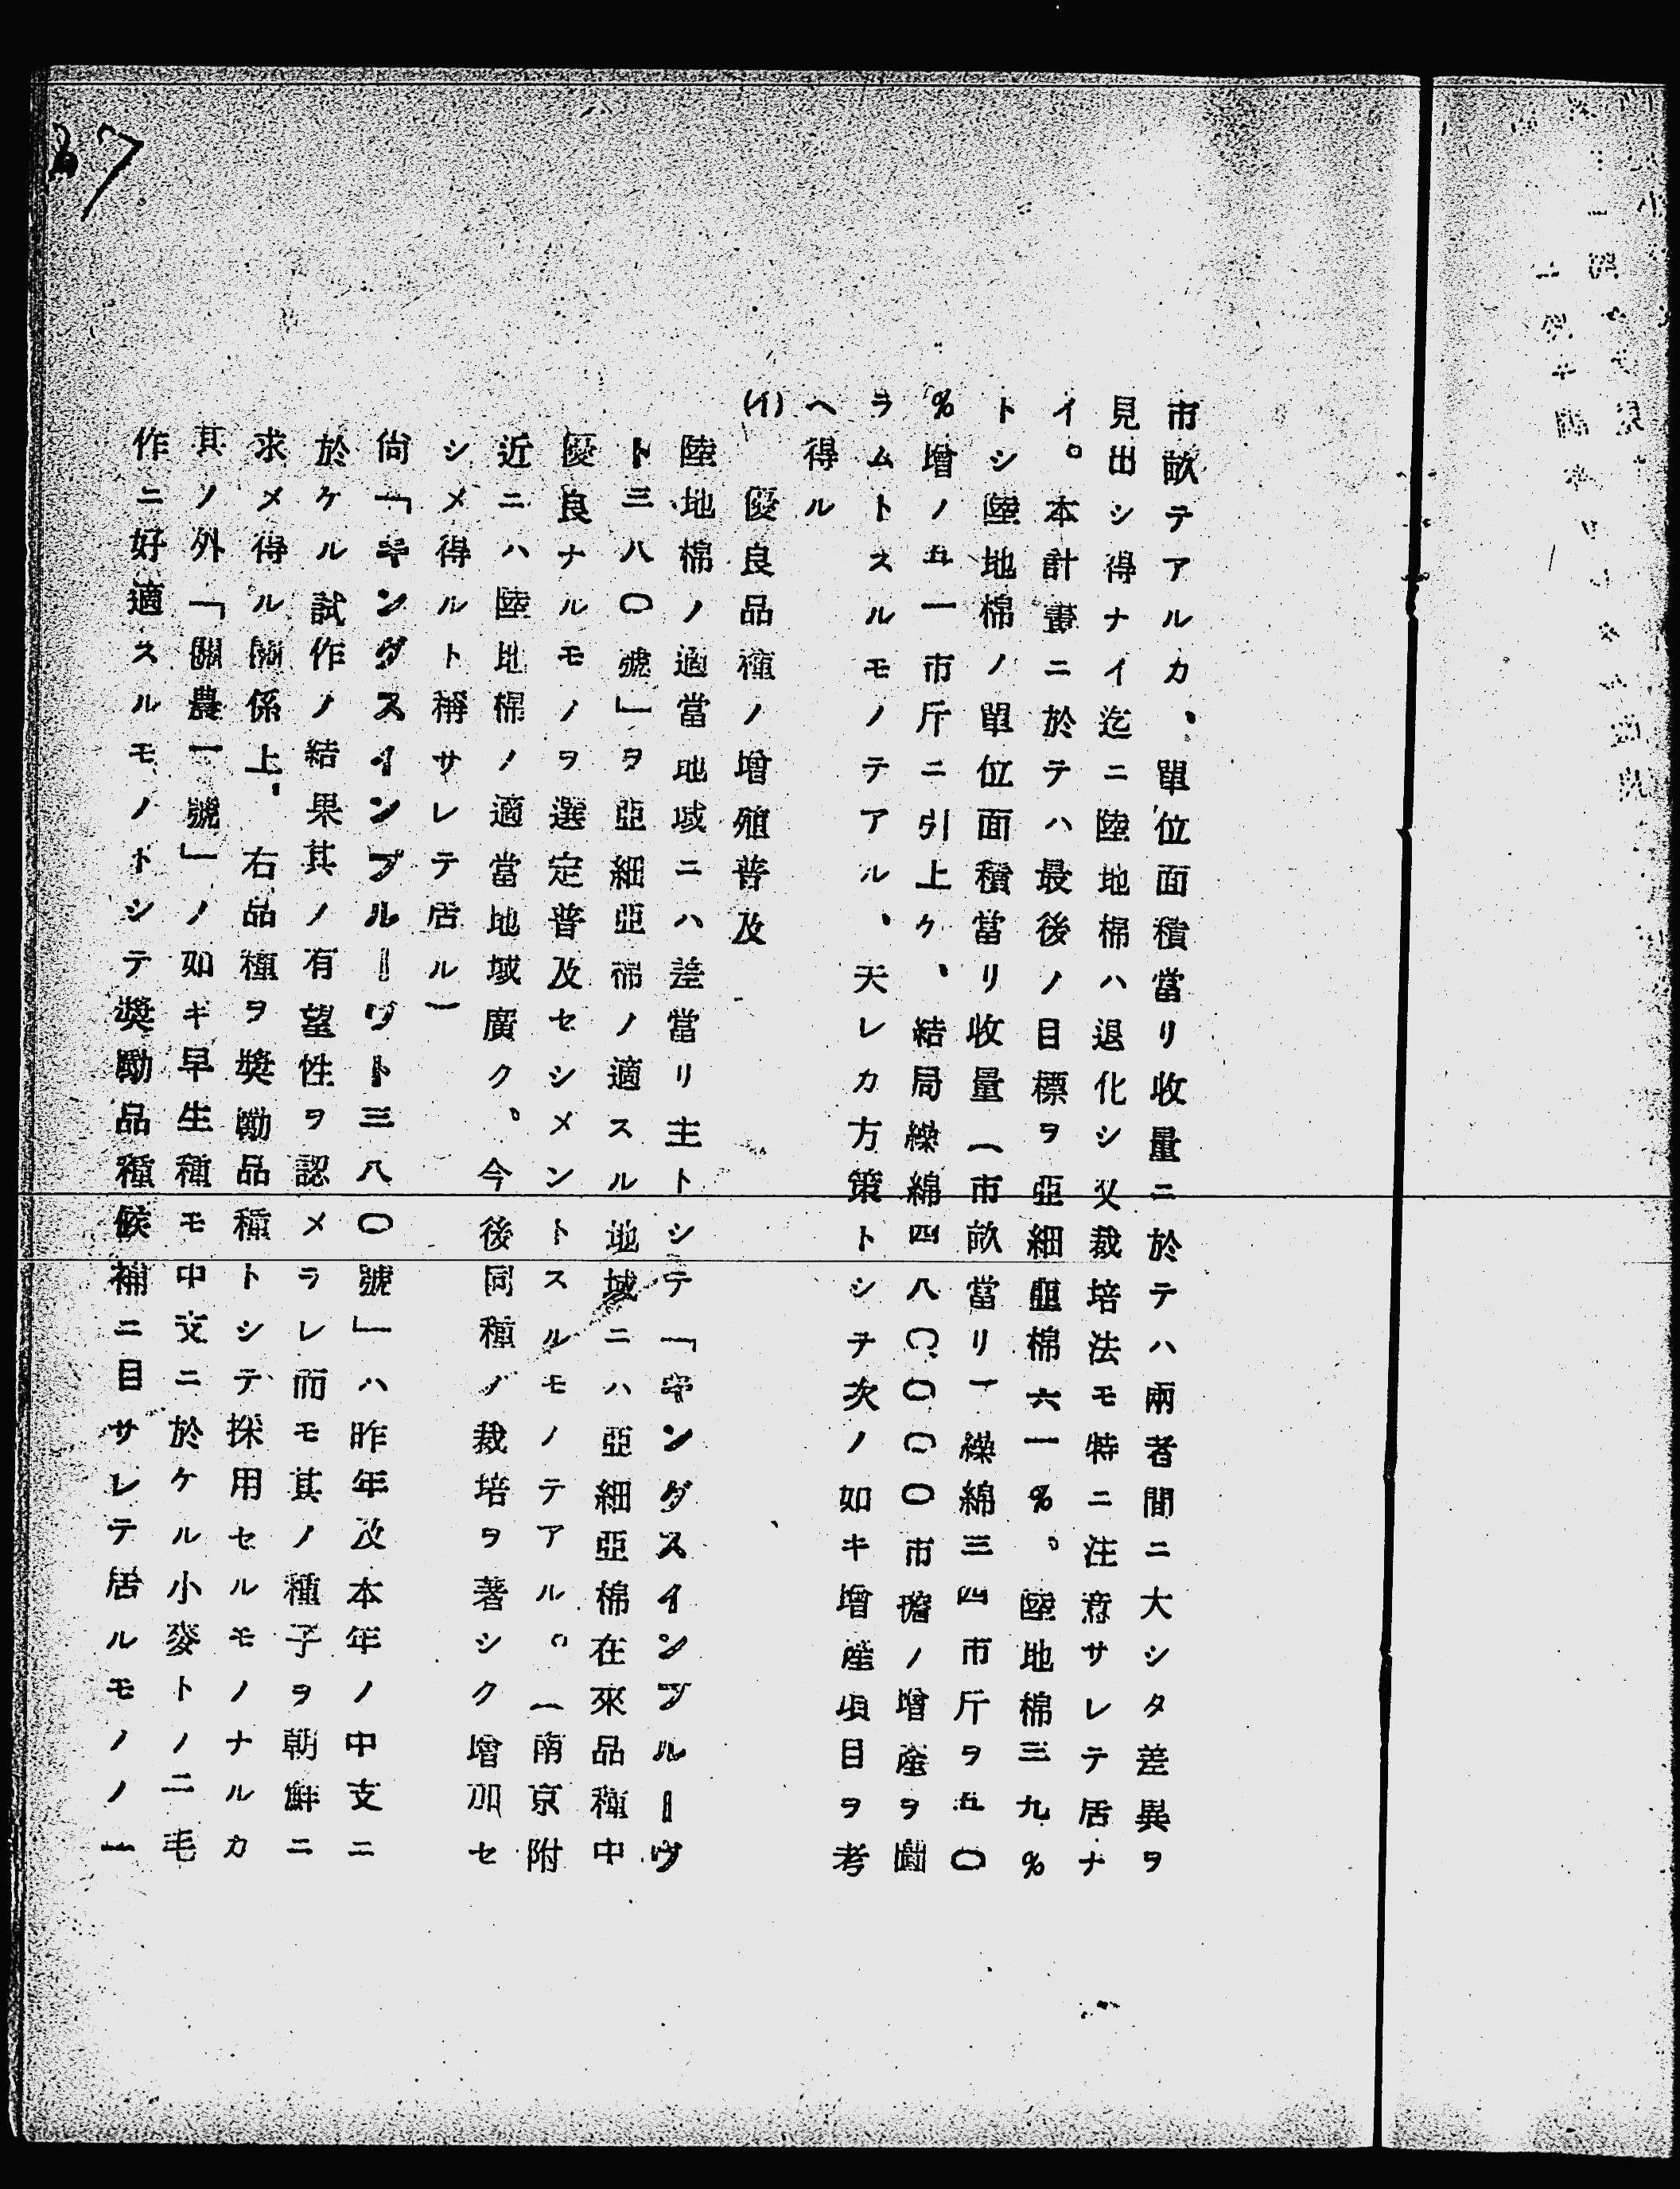 市畝テアルカ、單位面積當リ收量ニ於テハ兩者間ニ大シタ差異ヲ
見出シ得ナイ迄ニ陸地棉ハ退化シ又裁培法モ特ニ注意サレテ居ナ
イ。本計畫ニ於テハ最後ノ目標ヲ亞細亞棉六一%。陸地棉三九%
トシ陸地棉ノ單位面積當リ收量(市畝當リ一繰綿三四市斤ヲ五〇
%增ノ五一市斤ニ引上ケ、結局繰綿四八〇.〇〇〇市擔ノ增產ヲ圖
ラムトスルモノテアル、夫レカ方策トシテ次ノ如キ增產項目ヲ考
ヘ得ル
(イ) 優良品種ノ增殖普及
陸地棉ノ適當地域ニハ差當リ主トシテ「キンダスインプルーヴ
ト三八〇號」ヲ亞細亞棉ノ適スル地域ニハ亞細亞棉在來品種中
優良ナルモノヲ選定普及セシメントスルモノテアル。(南京附
近ニハ陸地棉ノ適當地域廣ク、今後同種ノ裁培ヲ著シク增加セ
シメ得ルト稱サレテ居ル)
尙「キンダスインプルーヴト三八〇號」ハ昨年及本年ノ中支ニ
於ケル試作ノ結果其ノ有望性ヲ認メラレ而モ其ノ種子ヲ朝鮮ニ
求メ得ル關係上、右品種ヲ奬勵品種トシテ採用セルモノナルカ
其ノ外「關農一號」ノ如キ早生種モ中支ニ於ケル小麥トノ二毛
作ニ好適スルモノトシテ奬勵品種候補ニ目サレテ居ルモノノ一